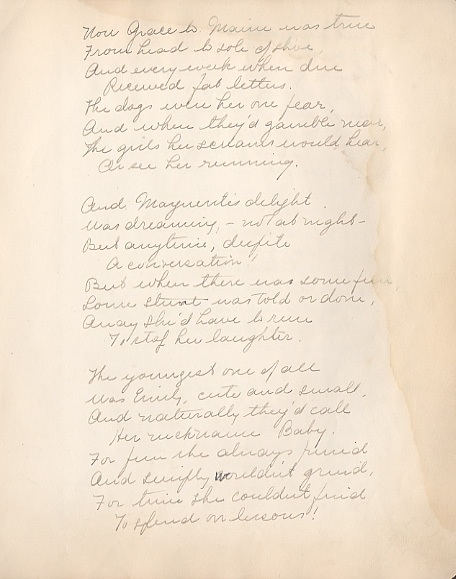 Now Grace to Maine was true
From head to sole of shoe,
And every week when due
Received fat letters.
The dogs were her one fear,
And when they'd gambol near,
The girls her screams would hear,
Or see her running.
And Marguerite's delight
Was dreaming, - not at night -
But anytime, despite
A conversation!
But when there was some fun,
Some stunt was told or done,
Away she'd have to run
To stop her laughter.
The youngest one of all
Was Emily, cute and small,
And naturally they'd call
Her nickname Baby.
For fun she always pined
And simply wouldn't grind,
For time she couldn't find
To spend on lessons!